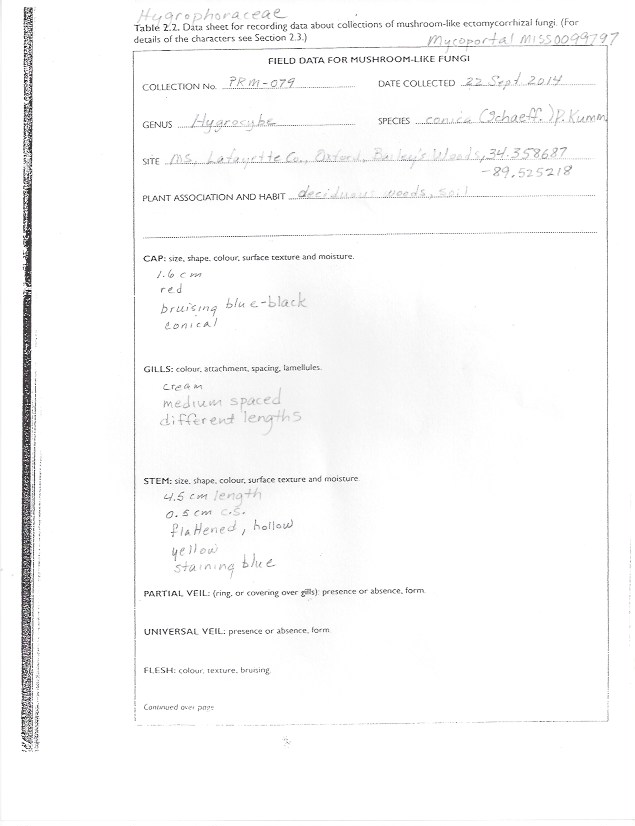 Hygrophoraceae
Table 2.2. Data sheet for recording data about collections of mushroom-like ectomycorrhizal fungi. (For
details of the characters see Section 2.3.)
Mycoportal MISS0099797
FIELD DATA FOR MUSHROOM-LIKE FUNGI
COLLECTION No. PRM-079 DATE COLLECTED 22 Sept 2014
GENUS Hygrocybe SPECIES conica (Schaeff.) P. Kumm
SITE MS, Lafayette Co., Oxford, Bailey's Woods, 34.358687
-89.525218
PLANT ASSOCIATION AND HABIT deciduous woods, soil
CAP: size, shape, colour, surface texture and moisture.
1.6 cm
red
bruising blue-black
conical
GILLS: colour, attachment, spacing, lamellules.
cream
medium spaced
different lengths
STEM: size, shape, colour, surface texture and moisture.
4.5 cm length
0.5 cm c.s.
flattened, hollow
yellow
staining blue
PARTIAL VEIL: (ring, or covering over gills): presence or absence, form.
UNIVERSAL VEIL: presence or absence, form
FLESH: colour, texture, bruising.
Continued over page